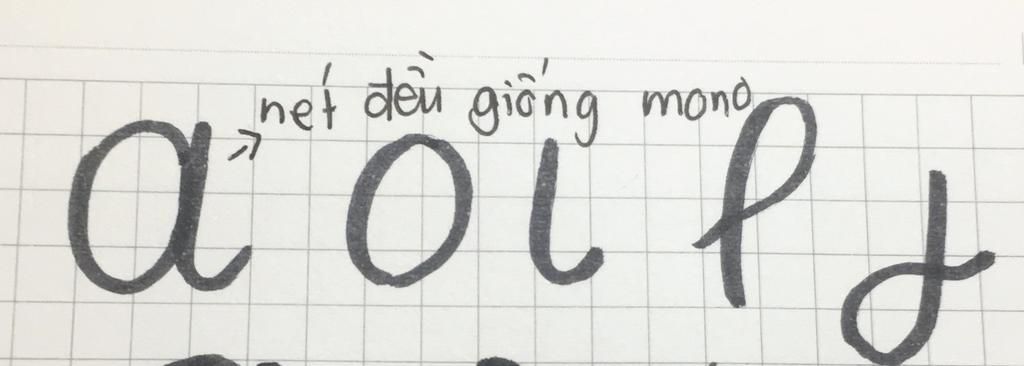 nét đều giống mono
a o